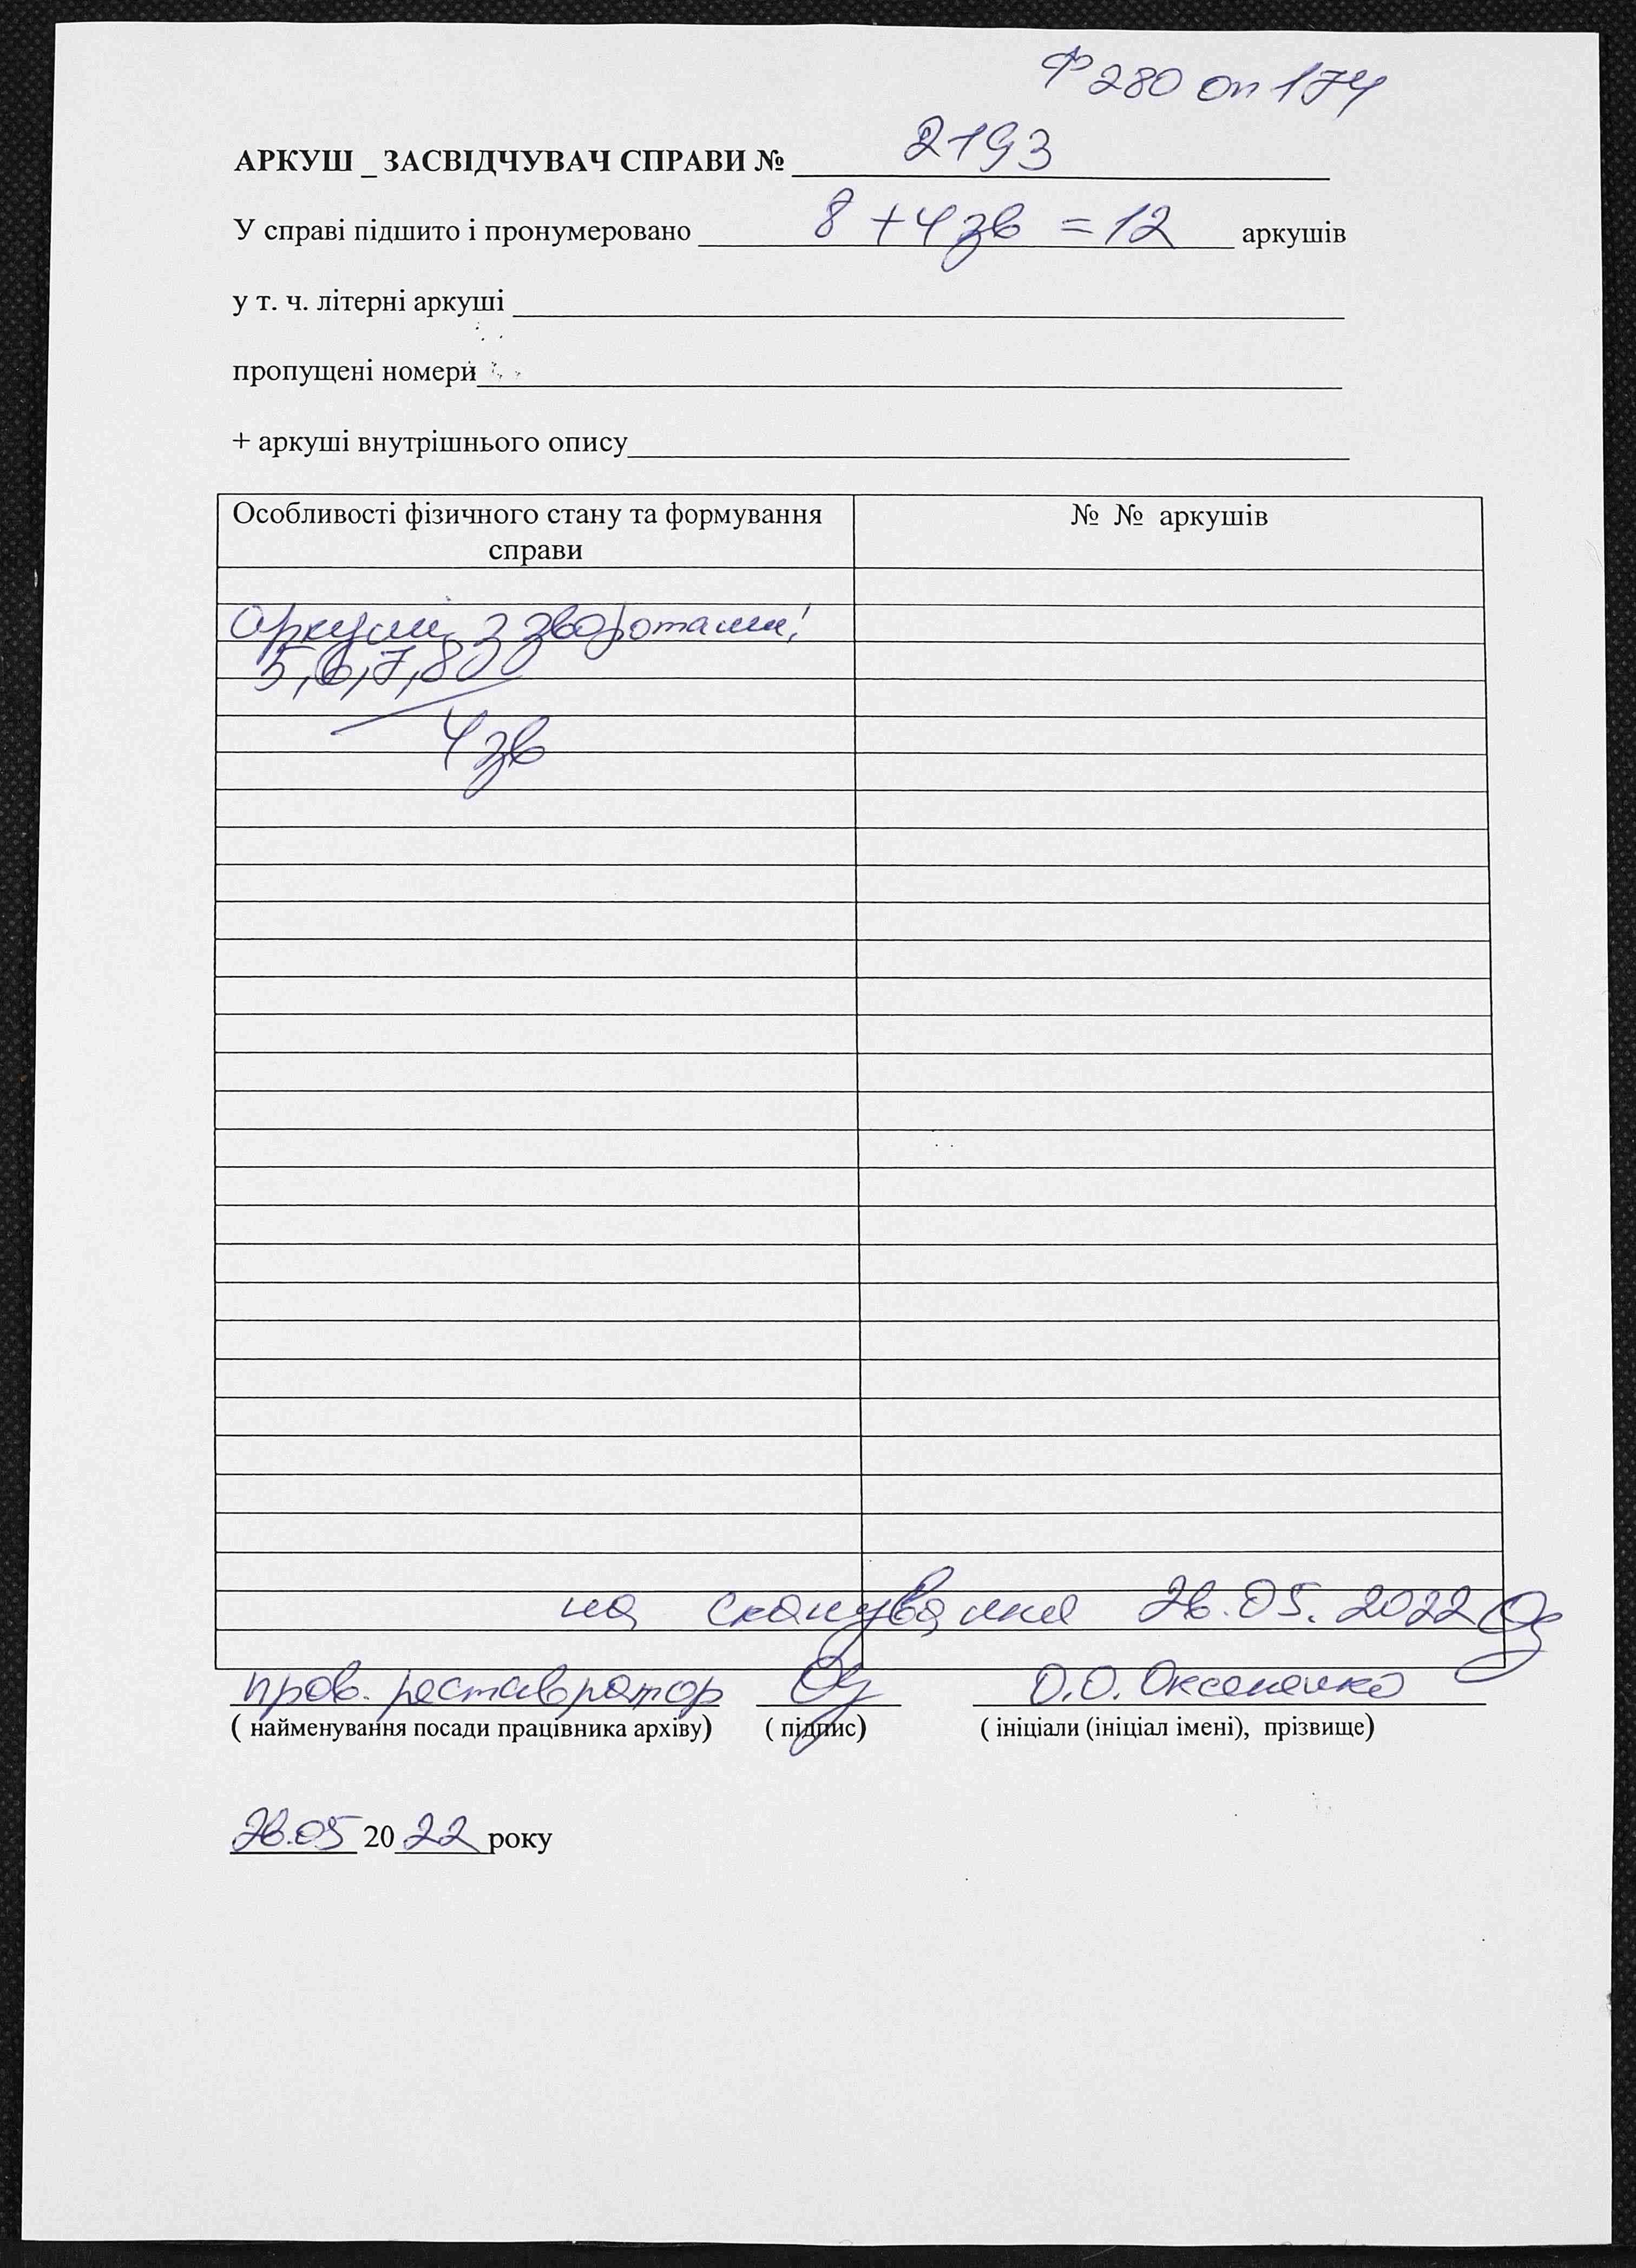 Ф 280 оп 174
АРКУШ _ ЗАСВІДЧУВАЧ СПРАВИ № 2193
У справі підшито і пронумеровано 8 + 4 зв = 12 аркушів
у т. ч. літерні аркуші
пропущені номери
+ аркуші внутрішнього опису
Особливості фізичного стану та формування справи
№ № аркушів
Аркуші з зворотами:
5,6,7,8
4 зв
на сканування 26.05.2022
пров. реставратор О.О. Оксененко
( найменування посади працівника архіву) ( підпис) ( ініціали (ініціал імені), прізвище)
26.05 2022 року